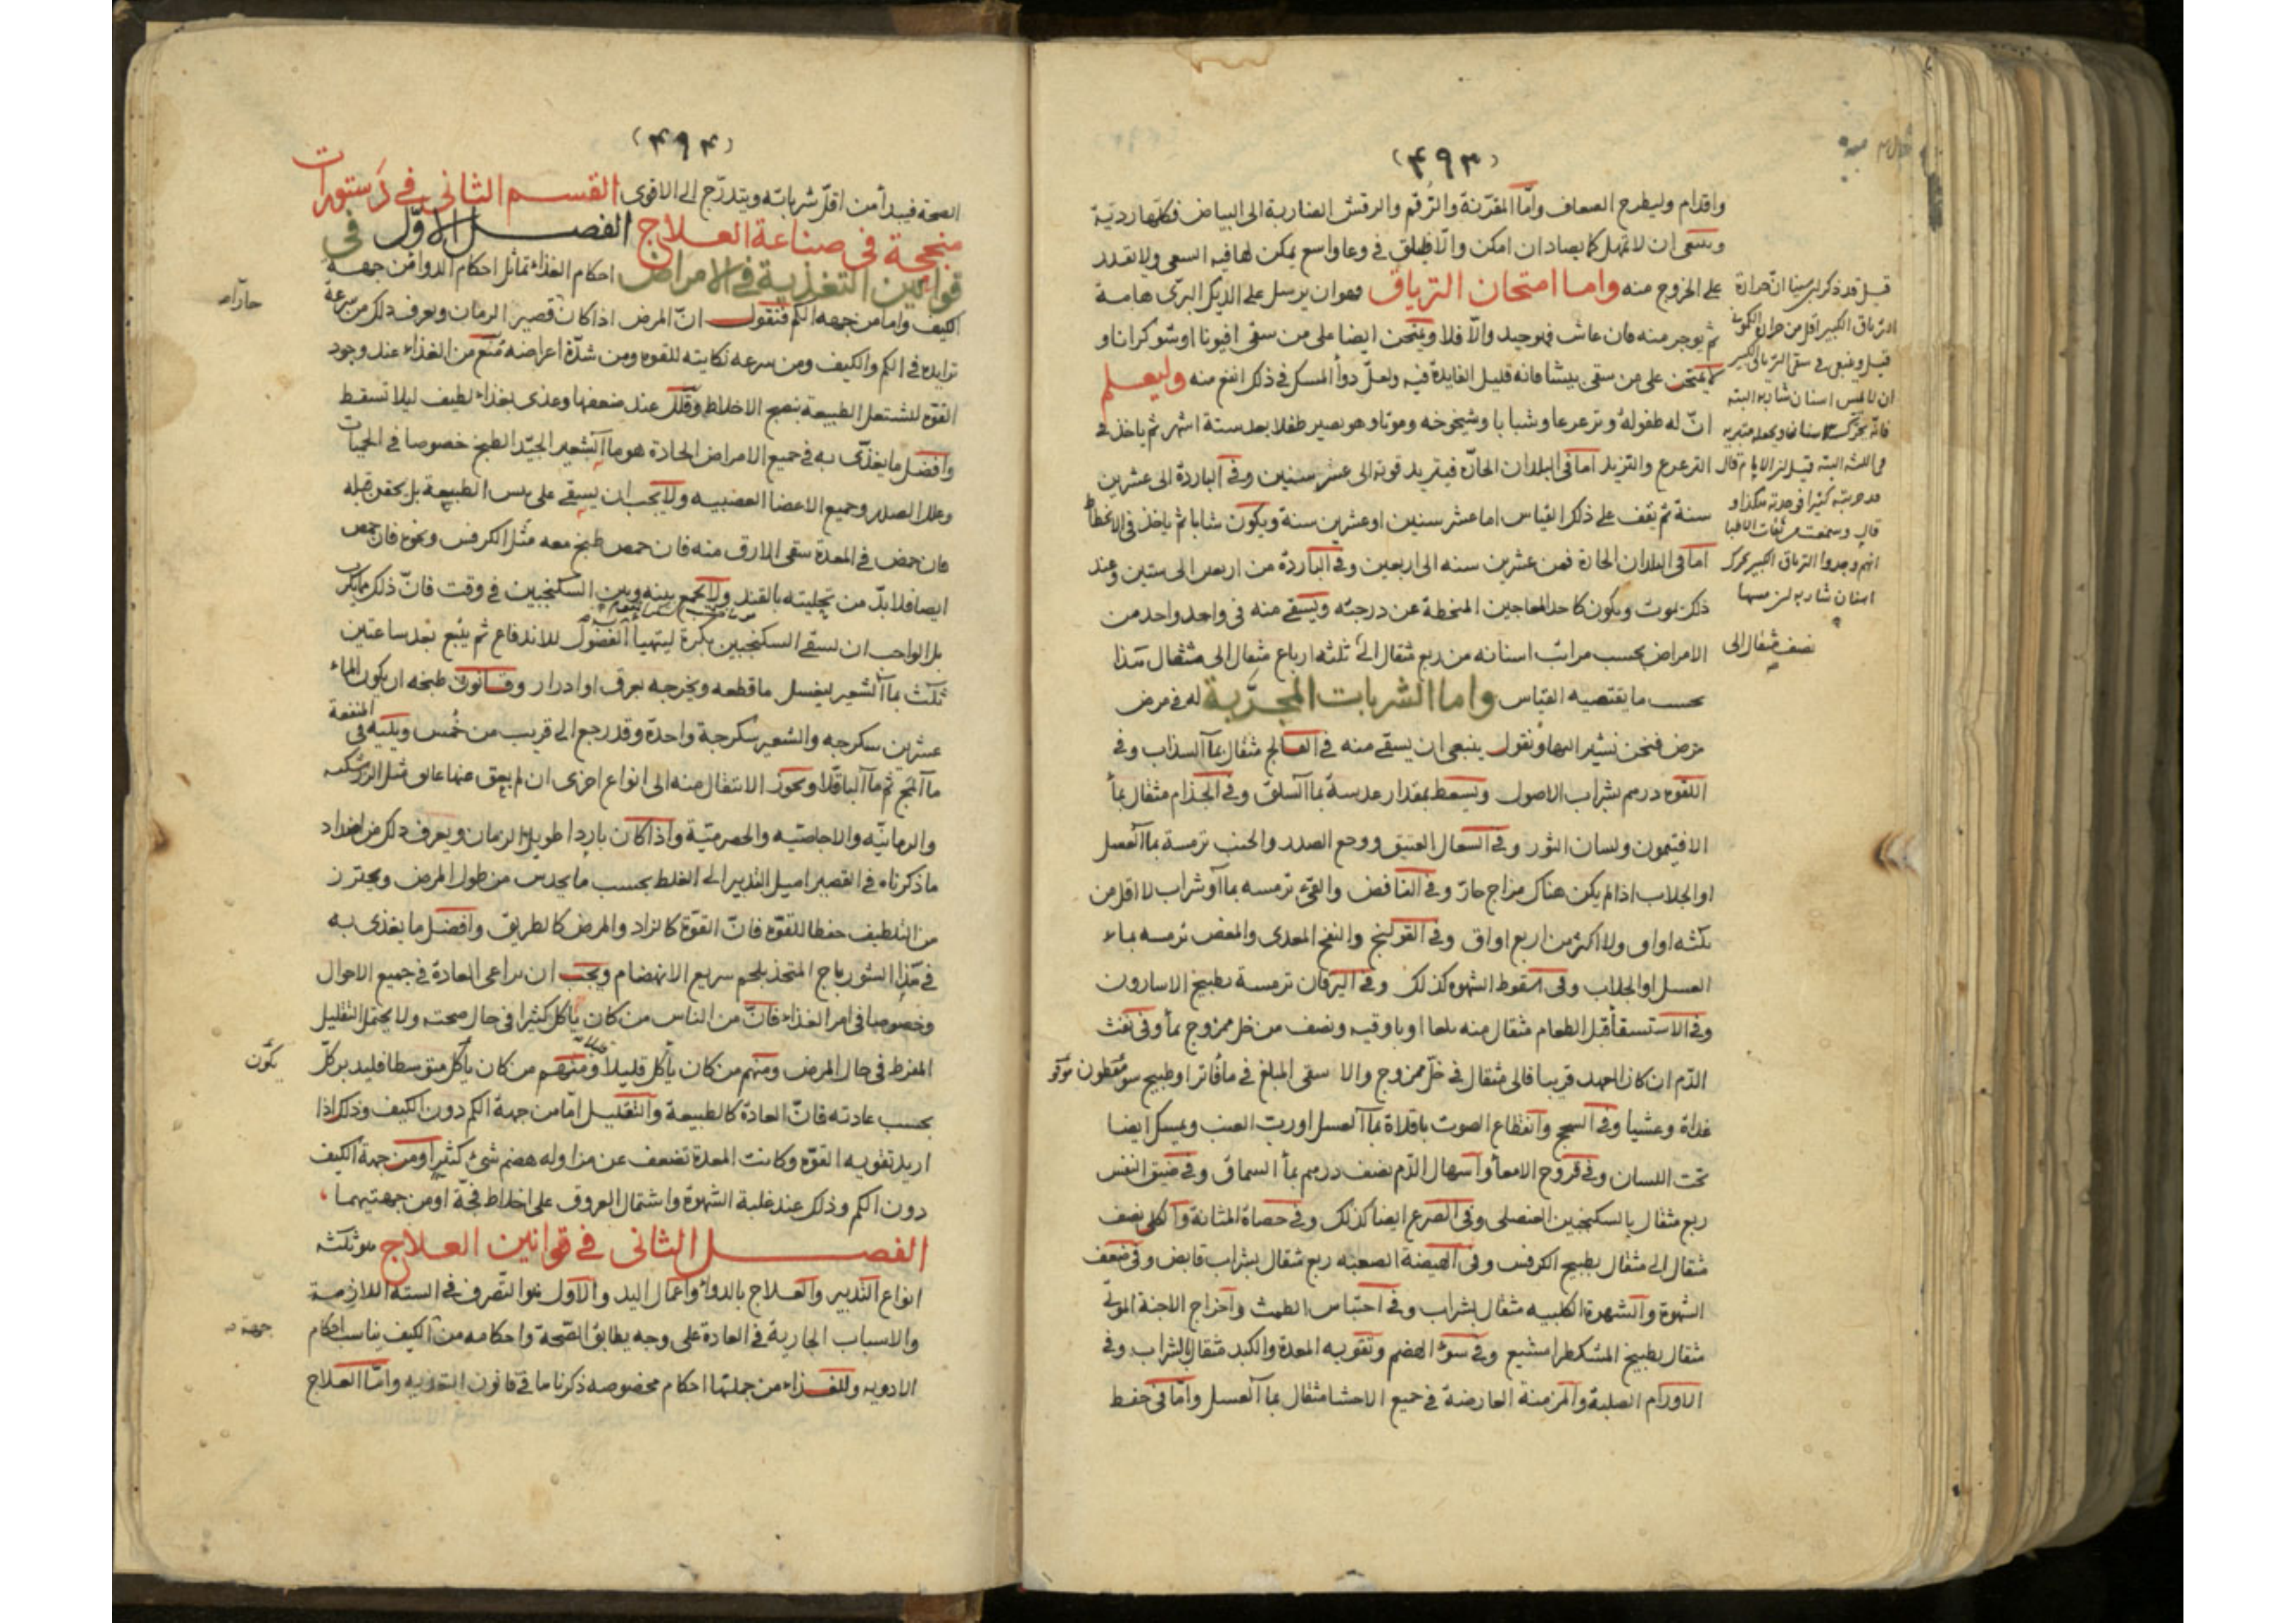 (٤٩٣)
واقدام وليطرح الضعاف واما المقرنة والرقم والرقش الضاربة الى البياض فكلها ردية
وينبغى ان لا تمهل كما يصاد ان امكن والا فليلق فى وعا واسع يمكن لها فيه السعى ولا تقدر
على الخروج منه واما امتحان الترياق فهو ان يرسل على الديك البرى هامة
ثم يوجر منه فان عاش فهو جيد والا فلا ويمتحن ايضا على من سقى افيونا او شوكرانا و
لا يمتحن على من سقى بيشا فانه قليل الفايدة فيه ولعل دوأ المسك فى ذلك انفع منه وليعلم
ان له طفولة وترعرعا وشبابا وشيخوخه وموتا وهو يصير طفلا بعد ستة اشهر ثم ياخذ فى
الترعرع والتزيد اما فى البلدان الحارة فيتزيد قوته الى عشر سنين وفى الباردة الى عشرين
سنة ثم يقف على ذلك القياس اما عشر سنين او عشرين سنة ويكون شابا ثم ياخذ فى الانحطاط
اما فى البلدان الحارة فمن عشرين سنه الى اربعين وفى الباردة من اربعين الى ستين وعند
ذلك يموت ويكون كاحد المعاجين المنحطة عن درجته ويسقى منه فى واحد واحد من
الامراض بحسب مراتب اسنانه من ربع مثقال الى ثلثه ارباع مثقال الى مثقال هذا
بحسب ما يقتضيه القياس واما الشربات المجربة له فى مرض
مرض فنحن نشير اليها ونقول ينبغى ان يسقى منه فى الفالج مثقال بمآ السذاب وفى
اللقوه درهم بشراب الاصول ويسعط بمقدار عدسة بمآ السلق وفى الجذام مثقال بمأ
الافتيمون ولسان الثور وفى السعال العتيق ووجع الصدر والجنب ترمسة بمآ العسل
او الجلاب اذا لم يكن هناك مزاج حار وفى النافض والقئ ترمسه بمآ او شراب لا اقل من
ثلثه اواق ولا اكثر من اربع اواق وفى القولنج والنفخ المعدى والمغص ترمسه بماء
العسل او الجلاب وفى سقوط الشهوه كذلك وفى اليرقان ترمسة بطبيخ الاسارون
وفى الاستسقأ قبل الطعام مثقال منه بلعا او باوقيه ونصف من خل ممزوج بمأ وفى نفث
الدم ان كان العهد قريبا فالى مثقال فى خل ممزوج والا سقى المبلغ فى مأ فاترا وطبيخ سومقطون
غداة وعشيا وفى السحج وانقطاع الصوت باقلاة بمآ العسل او رب العنب ويمسك ايضا
تحت اللسان وفى قروح الامعأ واسهال الدم نصف درهم بمأ السماق وفى ضيق النفس
ربع مثقال بالسكنجبين العنصلى وفى الصرع ايضا كذلك وفى حصاة المثانة والكلى نصف
مثقال الى مثقال بطبيخ الكرفس وفى الهيضة الصعبه ربع مثقال بشراب قابض وفى ضعف
الشهوة والشهوة الكلبيه مثقال بشراب وفى احتباس الطمث واخراج الاجنة الموتى
مثقال بطبيخ المشكطرامشيع وفى سوء الهضم وتقويه المعدة والكبد مثقال بالشراب وفى
الاورام الصلبة والمزمنة العارضة فى جميع الاحشا مثقال بمآ العسل واما فى حفظ
قيل قد ذكر ابن سينا ان حرارة
الترياق الكبير اقل من حرارة الكمونى
قيل وينبغى فى سقى الترياق الكبير
ان لا تمس اسنان شاربه البته
قال وسمعت من ثقات الاطبا
انهم وجدوا الترياق الكبير يحرك
اسنان شاربه لمن مسها
نصف مثقال الى
(٤٩٤)
الصحة فيبدأ من اقل شرباته ويتدرج الى الاقوى القسم الثانى فى دستورات
منجحة فى صناعة العلاج الفصل الاول فى
قوانين التغذية فى الامراض احكام الغذاء تماثل احكام الدوا من جهة
الكيف واما من جهه الكم فنقول ان المرض اذا كان قصير الزمان ويعرف ذلك من سرعة
تزايده فى الكم والكيف ومن سرعه نكايته للقوه ومن شدة اعراضه منع من الغذاء عند وجود
القوه لتشتغل الطبيعة بنضج الاخلاط وقلل عند ضعفها وغذى بغذاء لطيف ليلا تسقط
وافضل ما يغذى به فى جميع الامراض الحادة هو مآ الشعير الجيد الطبخ خصوصا فى الحميات
وعلل الصدر وجميع الاعضا العصبيه ولا يجب ان يسقى على يبس الطبيعة بل يحقن قبله
فان حمض فى المعدة سقى الارق منه فان حمض طبخ معه مثل الكرفس ونحوه فان حمض
ايضا فلا بد من تحليته بالقند ولا يجمع بينه وبين السكنجبين فى وقت فان ذلك مما يكرب
بل الواجب ان يسقى السكنجبين بكرة ليتهيأ الفضول للاندفاع ثم يتبع بعد ساعتين
ثلث بمآ الشعير ليغسل ما قطعه ويخرجه بعرق او ادرار وقانون طبخه ان يكون الماء
عشرين سكرجه والشعير سكرجة واحدة وقد رجع الى قريب من خمس ويليه فى المنفعة
مآ المج ثم مآ الباقلا ويجوز الانتقال منه الى انواع اخرى ان لم يعق عنها عايق مثل الزرشكيه
والرمانيه والاجاصيه والحصرمية واذا كان باردا طويل الزمان ويعرف ذلك من اضداد
ما ذكرناه فى القصير اميل التدبير الى الغلظ بحسب ما يحدس من طول المرض ويحترز
من التلطيف حفظا للقوه فان القوة كالزاد والمرض كالطريق وافضل ما يغذى به
فى هذا الشورباج المتخذ بلحم سريع الانهضام ويجب ان يراعى العادة فى جميع الاحوال
وخصوصا فى امر الغذاء فان من الناس من كان يأكل كثيرا فى حال صحته ولا يحتمل التقليل
المفرط فى حال المرض ومنهم من كان يأكل قليلا ومنهم من كان يأكل متوسطا فليدبر كل
بحسب عادته فان العادة كالطبيعة والتقليل اما من جهة الكم دون الكيف وذلك اذا
اريد تقويه القوه وكانت المعدة تضعف عن مزاوله هضم شئ كثير او من جهة الكيف
دون الكم وذلك عند غلبة الشهوة واشتمال العروق على اخلاط فجة او من جهتيهما
الفصل الثانى فى قوانين العلاج هو ثلثه
انواع التدبير والعلاج بالدواء واعمال اليد والاول هو التصرف فى السته اللازمة
والاسباب الجارية فى العادة على وجه يطابق الصحة واحكامه من الكيف يناسب احكام
الادويه وللغذاء من جملتها احكام مخصوصه ذكرناها فى قانون التغذيه واما العلاج
يكون